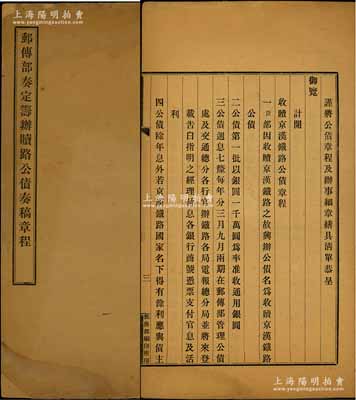 上海陽明拍賣
郵傳部奏定籌辦贖路公債奏稿章程
謹將公債章程及辦事細章繕具清單恭呈
御覽
計開
收贖京漢鐵路公債章程
一 部因收贖京漢鐵路之故籌辦公債名為收贖京漢鐵路
公債
二公債第一批以銀圓一千萬圓為率准收通用銀圓
三公債週息七釐每年分三月九月兩期在郵傳部管理公債
處及交通總分各行官辦鐵路各局電報總分局並將來登
載告白指明之經理 息各銀行 號憑票支付官息及活
利
四公債除年息外若京漢鐵路國家名下得有餘利應與債主
三
上海陽明拍賣